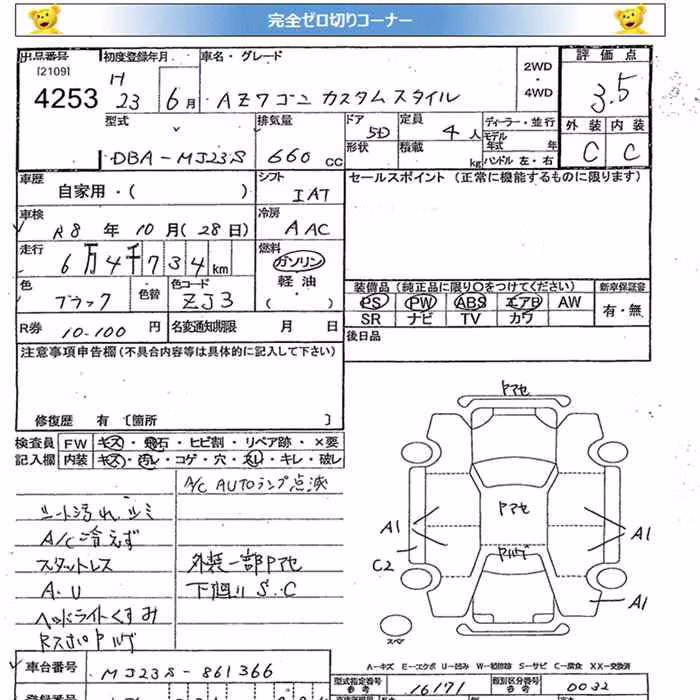 完全ゼロ切りコーナー
出品番号 初度登録年月 車名・グレード 2WD・4WD 評価点
[2109]
4253 H23 6月 AZワゴン カスタムスタイル 3.5
型式 排気量 ドア 5D 定員 4人 ディーラー・並行 外装 内装
モデル年式 年
DBA-MJ23S 660cc 形状 積載 kg ハンドル 左・右 C C
車歴 シフト セールスポイント (正常に機能するものに限ります)
自家用・( ) IAT
車検 冷房
R8年10月(28日) AAC
走行 燃料
6万4千734km ガソリン・軽油・( )
色 色替 色コード 装備品 (純正品に限り〇をつけてください) 新車保証書
ブラック ZJ3 PS PW ABS エアB AW 有・無
SR ナビ TV カワ
R券 10-100円 名変通知期限 月 日 後日品
注意事項申告欄 (不具合内容等は具体的に記入して下さい)
修復歴 有 〔箇所 〕
検査員 FW キズ・飛石・ヒビ割・リペア跡・×要
記入欄 内装 キズ・汚レ・コゲ・穴・スレ・キレ・破レ
A/C AUTOランプ点滅
シート汚れ シミ
A/C冷えず
スタットレス 外装一部Pマセ
A.U 下廻り S.C
ヘッドライトくすみ
RスポPハゲ
Pマセ
Pマセ
Pハゲ
A1 A1
C2
A1
スペア
A-キズ E-エクボ U-凹み W-補修跡 S-サビ C-腐食 XX-交換済
車台番号 MJ23S-861366
型式指定番号 参考 16171 類別区分番号 参考 0032